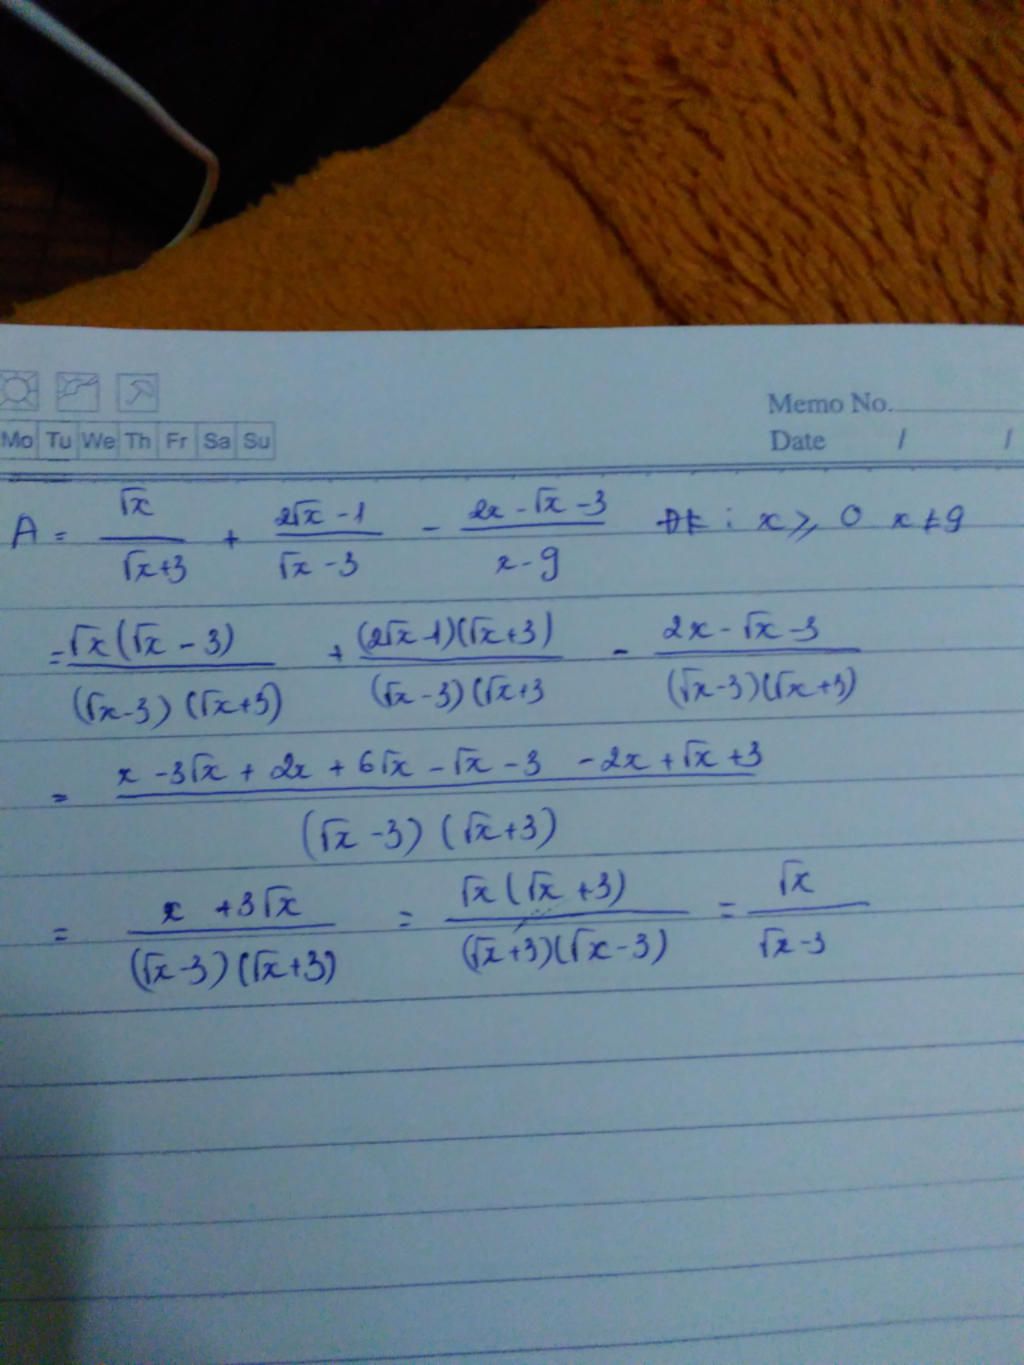 Memo No.
Mo Tu We Th Fr Sa Su Date / /
A = √x/(√x+3) + (2√x-1)/(√x-3) - (2x-√x-3)/(x-9) ĐK : x ≥ 0 x ≠ 9
= √x(√x-3)/(√x-3)(√x+3) + (2√x-1)(√x+3)/(√x-3)(√x+3 - (2x-√x-3)/(√x-3)(√x+3)
= (x-3√x+2x+6√x-√x-3-2x+√x+3)/(√x-3)(√x+3)
= (x+3√x)/(√x-3)(√x+3) = √x(√x+3)/(√x+3)(√x-3) = √x/(√x-3)